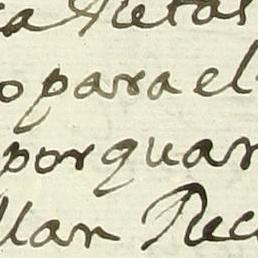 a Retas
o para el
por quan
llar Rec